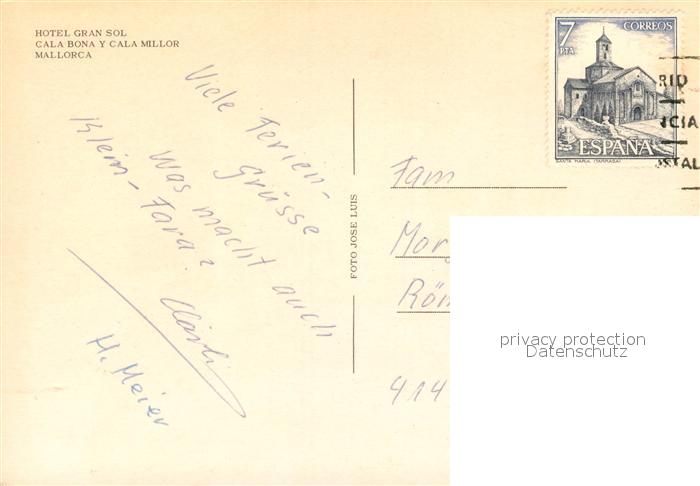 HOTEL GRAN SOL
CALA BONA Y CALA MILLOR
MALLORCA
7
PTA
CORREOS
ESPAÑA
SANTA MARIA (TARRASA)
RIO
NCIA
OSTAL
Viele Ferien-
Grüsse
Was macht auch
Klein-Tara?
H. Meier
FOTO JOSE LUIS
Fam
Mor
Röm
414
privacy protection
Datenschutz